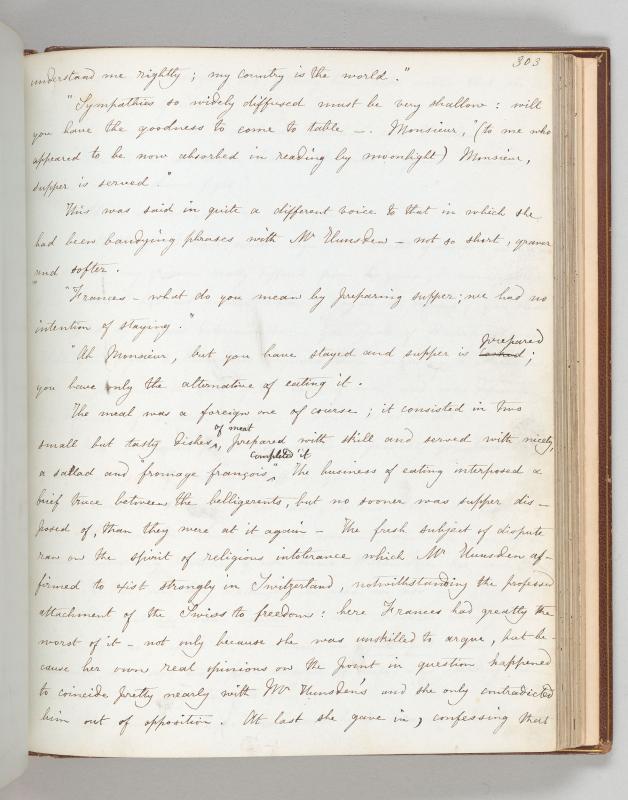 303
understand me rightly; my country is the world."
"Sympathies so widely diffused must be very shallow: will
you have the goodness to come to table —. Monsieur," (to me who
appeared to be now absorbed in reading by moonlight) Monsieur,
supper is served."
This was said in quite a different voice to that in which she
had been bandying phrases with Mr Hunsden — not so short, graver
and softer.
"Frances — what do you mean by preparing supper; we had no
intention of staying."
prepared
"Ah Monsieur, but you have stayed and supper is ;
you have only the alternative of eating it.
The meal was a foreign one of course; it consisted in two
of meat
small but tasty dishes, prepared with skill and served with nicety,
completed it
a sallad and "fromage françois". The business of eating interposed a
brief truce between the belligerents, but no sooner was supper dis-
posed of, than they were at it again — The fresh subject of dispute
ran on the spirit of religious intolerance which Mr Hunsden af-
firmed to exist strongly in Switzerland, notwithstanding the professed
attachment of the Swiss to freedom: here Frances had greatly the
worst of it — not only because she was unskilled to argue, but be-
cause her own real opinions on the point in question happened
to coincide pretty nearly with Mr Hunsden's and she only contradicted
him out of opposition. At last she gave in, confessing that